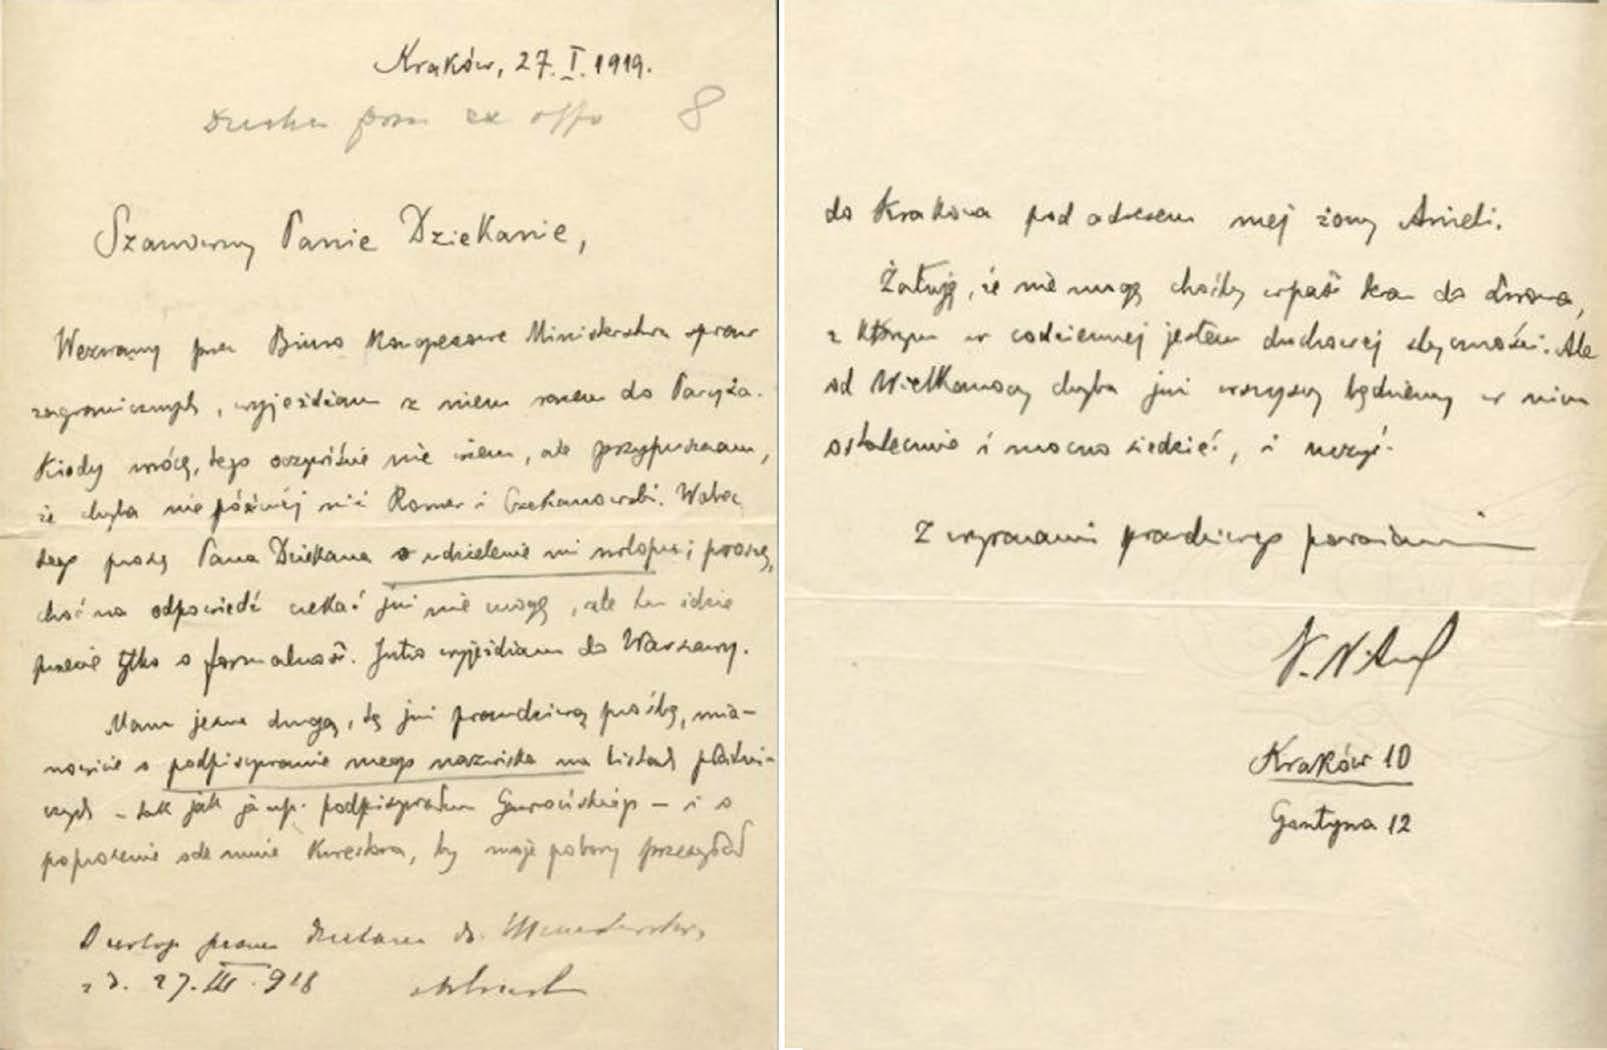 Kraków, 27.I.1919.
ex offo 8
Szanowny Panie Dziekanie,
Wezwany przez Biuro Kongresowe Ministerstwa spraw
zagranicznych, wyjeżdżam z niem razem do Paryża.
Kiedy wrócę, tego oczywiście nie wiem, ale przypuszczam,
że chyba nie później niż Romer i Czekanowski. Wobec
tego proszę Pana Dziekana o udzielenie mi urlopu; proszę,
choć na odpowiedź czekać już nie mogę, ale tu idzie
przecie tylko o formalność. Jutro wyjeżdżam do Warszawy.
Mam jeszcze drugą, tę już prawdziwą prośbę, mia-
nowicie o podpisywanie mego nazwiska na listach płatni-
czych – tak jak ja np. podpisywałem – i o
poproszenie ode mnie Kwestora, by moje pobory przesyłał
O urlop do Ministerstwa
z d. 27.III.918
do Krakowa pod adresem mej żony Anieli.
Żałuję, że nie mogę choćby wpaść do Lwowa,
z którym w codziennej jestem duchowej styczności. Ale
od Wielkanocy chyba już wszyscy będziemy w nim
ostatecznie i mocno siedzieć, i uczyć.
Z wyrazami prawdziwego poważania
K. Nitsch
Kraków 10
Gontyna 12